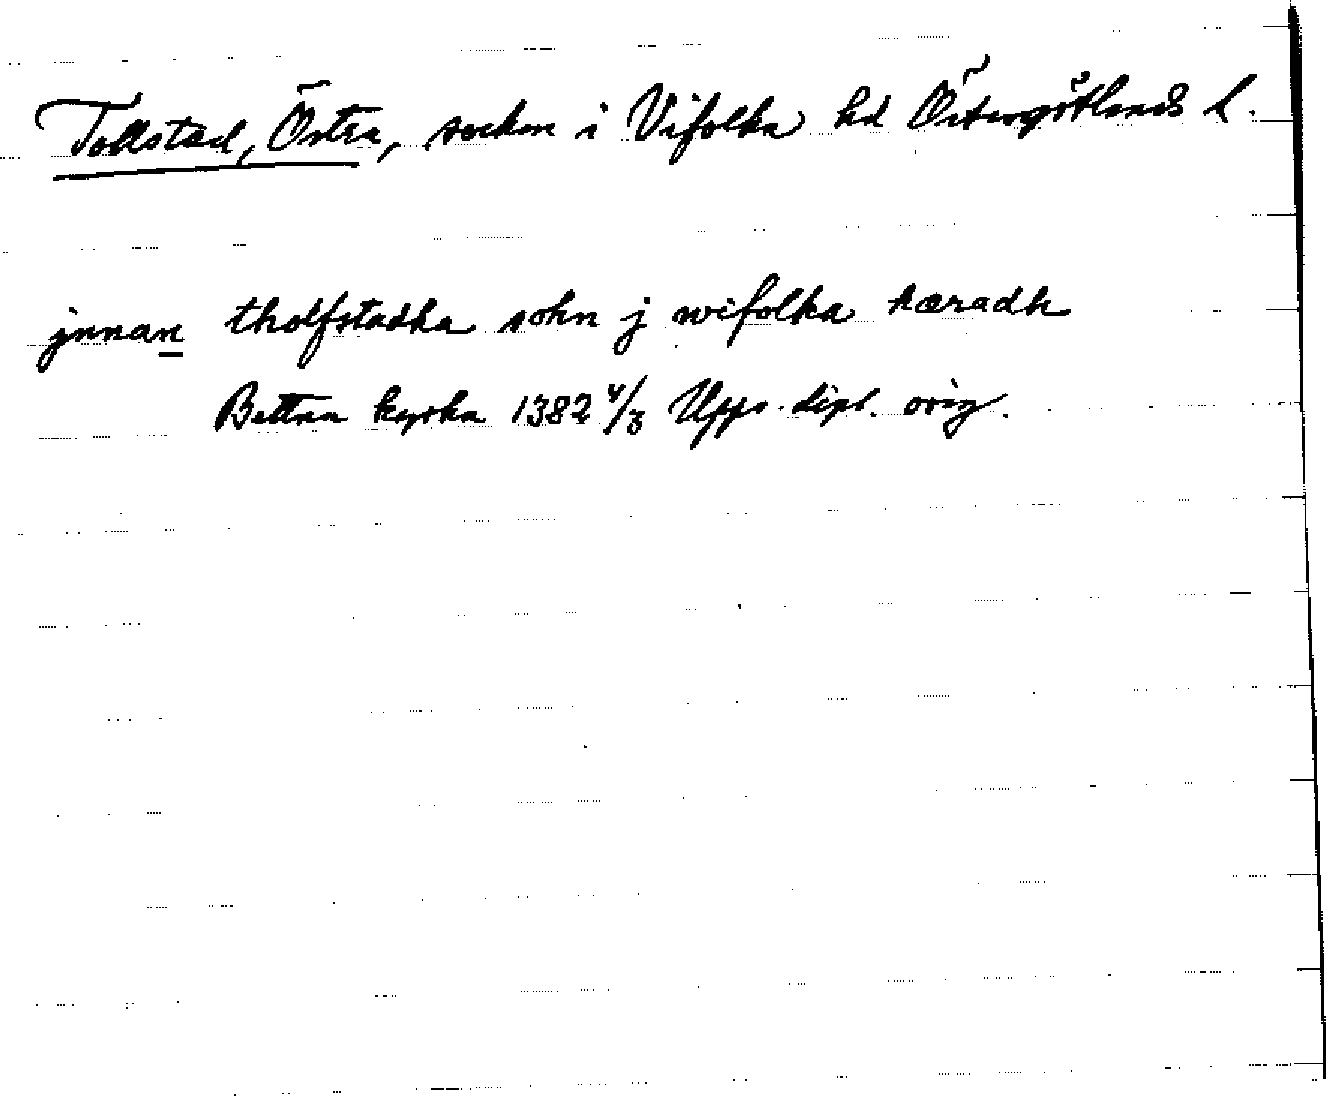 Tollstad, Östra, socken i Vifolka hd Östergötlands l.
jnnan tholfstadha sokn j wifolka hæradh
Bettna kyrka 1382 4/3 Upps. dipl. orig.